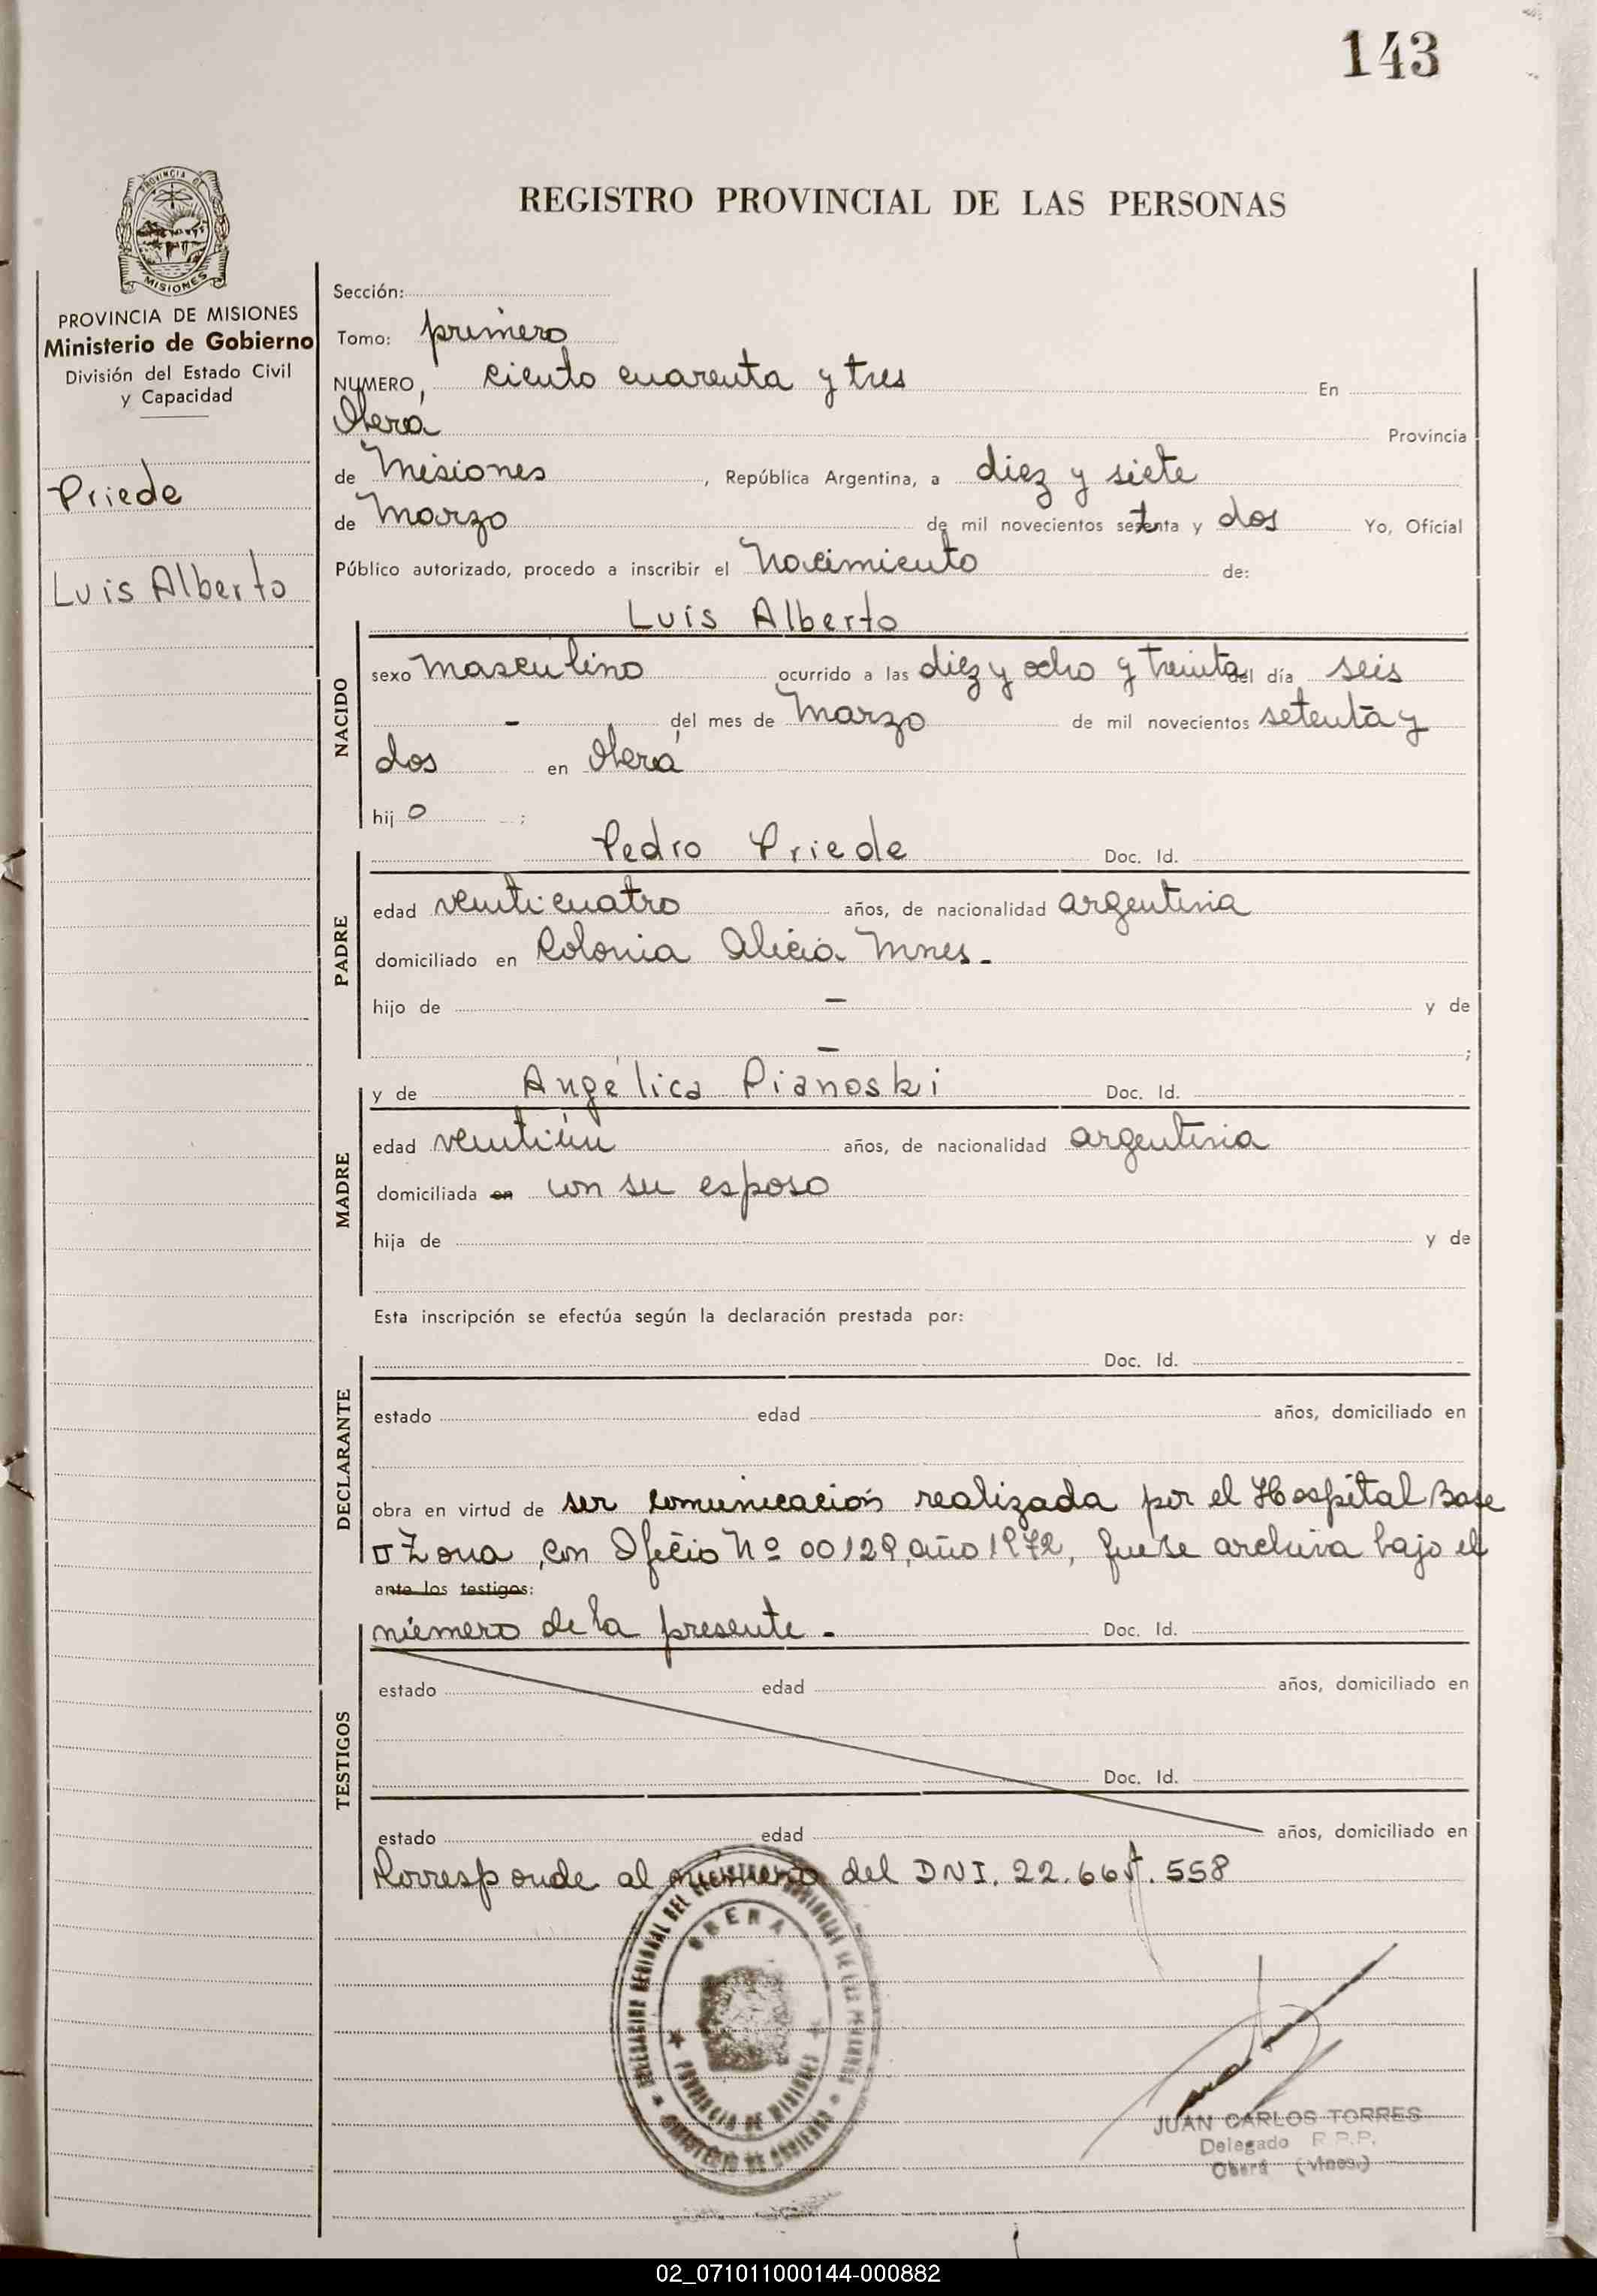 143
PROVINCIA DE
MISIONES
REGISTRO PROVINCIAL DE LAS PERSONAS
PROVINCIA DE MISIONES
Ministerio de Gobierno
División del Estado Civil
y Capacidad
Priede
Luis Alberto
Sección:
Tomo: primero
NUMERO, ciento cuarenta y tres En
Oberá Provincia
de Misiones, República Argentina, a diez y siete
de Marzo de mil novecientos setenta y dos Yo, Oficial
Público autorizado, procedo a inscribir el Nacimiento de:
Luis Alberto
NACIDO
sexo masculino ocurrido a las diez y ocho y treinta del día seis
- del mes de Marzo de mil novecientos setenta y
dos en Oberá
hij o ;
PADRE
Pedro Priede Doc. Id.
edad veinticuatro años, de nacionalidad argentina
domiciliado en Colonia Alicia Mnes.-
hijo de - y de
- ;
MADRE
y de Angélica Pianoski Doc. Id.
edad veintiún años, de nacionalidad argentina
domiciliada en con su esposo
hija de y de
Esta inscripción se efectúa según la declaración prestada por:
DECLARANTE
Doc. Id.
estado edad años, domiciliado en
obra en virtud de ser comunicación realizada por el Hospital Base
II Zona, con Oficio Nº 00129, año 1972, que se archiva bajo el
ante los testigos:
TESTIGOS
número de la presente.- Doc. Id.
estado edad años, domiciliado en
Doc. Id.
estado edad años, domiciliado en
Corresponde al número del DNI. 22.665.558
DELEGACION REGIONAL DEL REGISTRO PROVINCIAL DE LAS PERSONAS
OBERA
PROVINCIA DE MISIONES
MINISTERIO DE GOBIERNO
JUAN CARLOS TORRES
Delegado R.P.P.
Oberá (Mnes.)
02_071011000144-000882